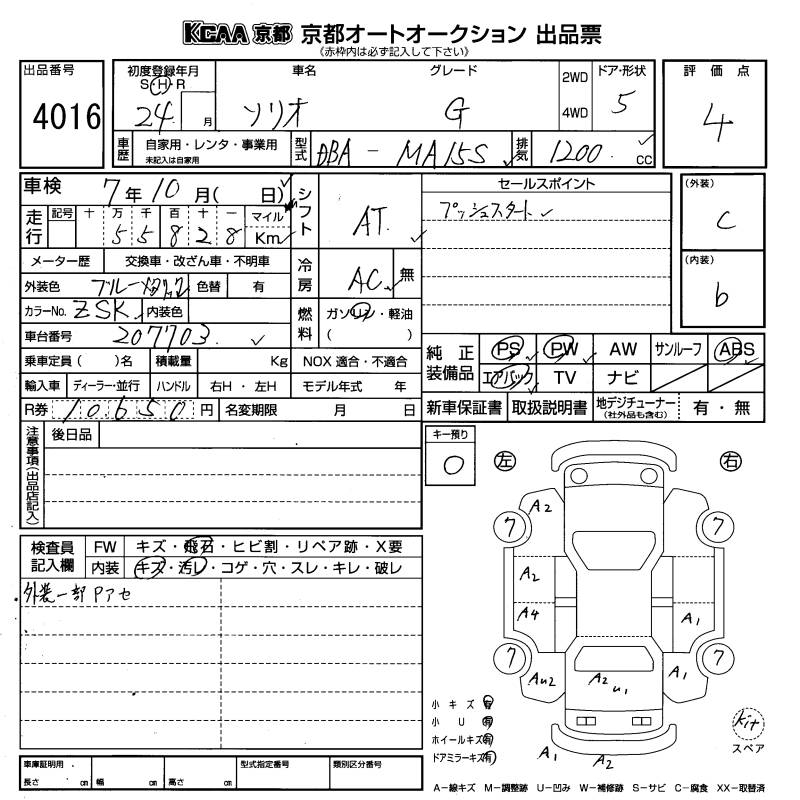 KCAA 京都 京都オートオークション 出品票
《赤枠内は必ず記入して下さい》
出品番号 4016
初度登録年月 S・H・R 24 月
車名 ソリオ
グレード G
2WD 4WD
ドア・形状 5
評価点 4
車歴 自家用・レンタ・事業用 未記入は自家用
型式 DBA - MA15S
排気 1200 cc
車検 7年10月( 日)
走行 記号 十 万 千 百 十 一 マイル Km
5 5 8 2 8
シフト AT
セールスポイント
プッシュスタート
(外装) C
(内装) b
メーター歴 交換車・改ざん車・不明車
冷房 AC 無
外装色 ブルーメタリック 色替 有
カラーNo. ZSK 内装色
燃料 ガソリン・軽油 ( )
車台番号 207703
乗車定員( )名 積載量 Kg NOX 適合・不適合
純正装備品 PS PW AW サンルーフ ABS
エアバック TV ナビ
輸入車 ディーラー・並行 ハンドル 右H・左H モデル年式 年
R券 10650円 名変期限 月 日
新車保証書 取扱説明書 地デジチューナー (社外品も含む) 有・無
注意事項(出品店記入) 後日品
キー預り 0
左 右
検査員記入欄 FW キズ・飛石・ヒビ割・リペア跡・X要
内装 キズ・汚レ・コゲ・穴・スレ・キレ・破レ
外装一部Pアセ
A2
7 7
A2
A4 A1
7 7
AU2 A2 U1 A1
小キズ 有
小U 有
ホイールキズ 有
ドアミラーキズ 有
A1 A2
kit
スペア
車庫証明用 長さ cm 幅 cm 高さ cm 型式指定番号 類別区分番号
A-線キズ M-調整跡 U-凹み W-補修跡 S-サビ C-腐食 XX-取替済